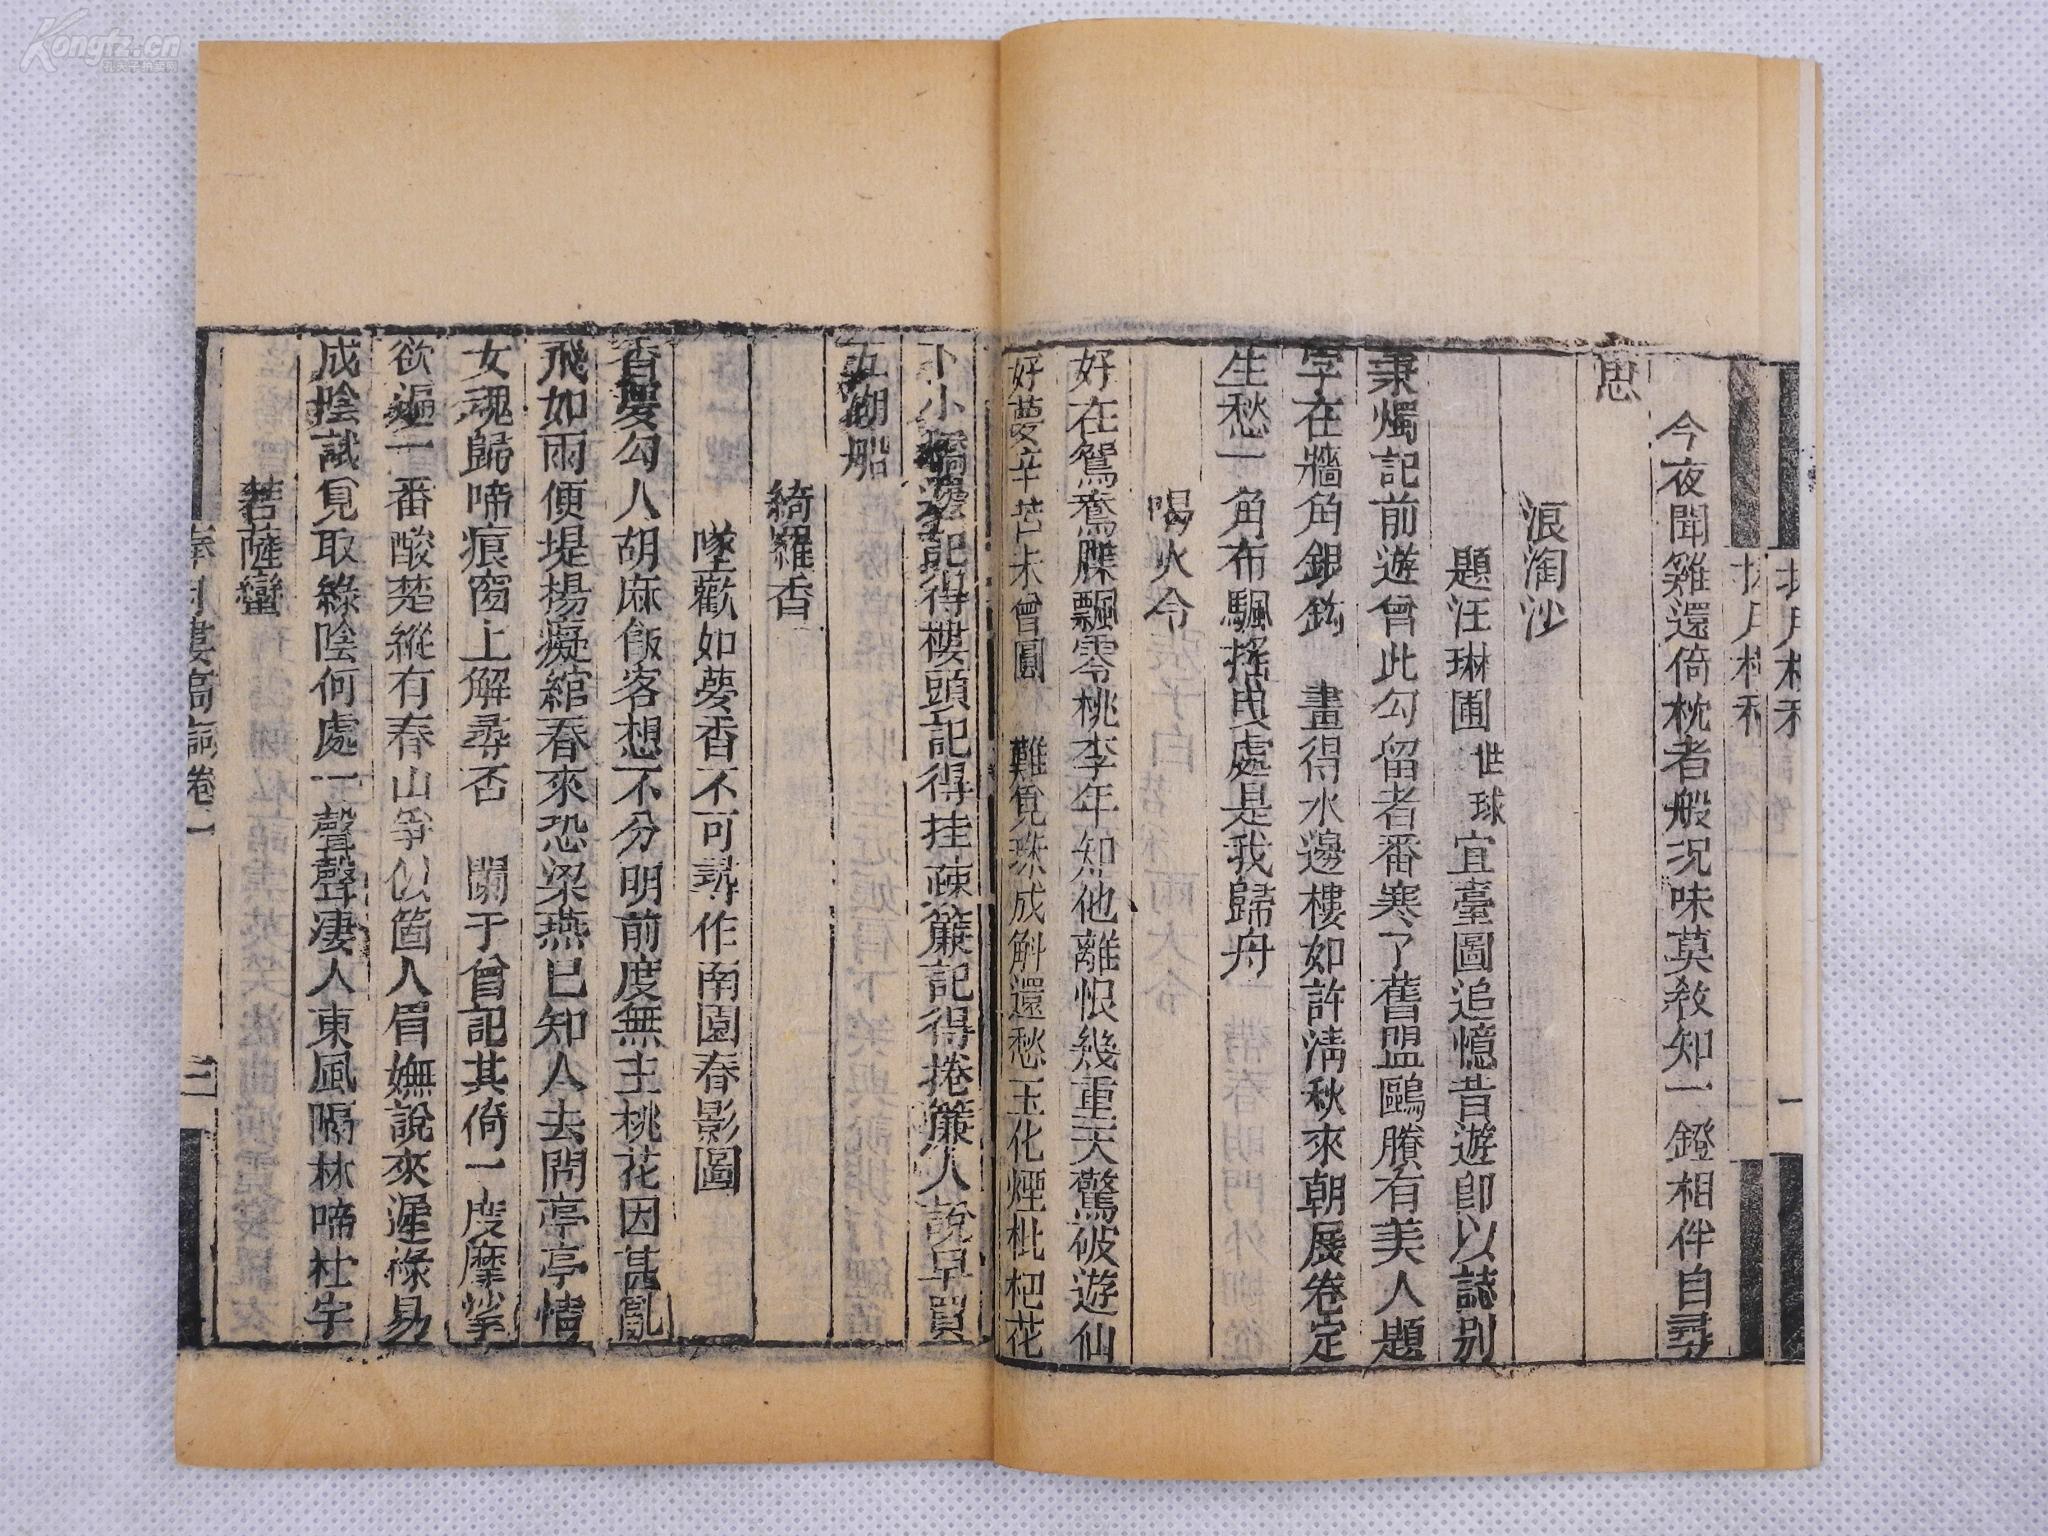 今夜聞雞還倚枕者般況味莫教知一鐙相伴自尋
思
浪淘沙
題汪琳圃世球宜臺圖追憶昔遊卽以誌别
秉燭記前遊曾此勾留者番寒了舊盟鷗賸有美人題
字在牆角銀鈎 畫得水邊樓如許淸秋來朝展卷定
生愁一角布颿搖曳處是我歸舟
喝火令
好在鴛鴦牒飄零桃李年知他離恨幾重天驚破遊仙
好夢辛苦未曾圓 難覓珠成斛還愁玉化煙枇杷花
下小橋邊記得樓頭記得挂疎簾記得捲簾人說早買
五湖船
綺羅香
墜歡如夢香不可尋作南園春影圖
香夢勾人胡麻飯客想不分明前度無主桃花因甚亂
飛如雨便堤楊癡綰春來恐梁燕已知人去閒亭亭情
女魂歸啼痕窗上解尋否 闌干曾記共倚一度摩挲
欲遍一番酸楚縱有春山爭似箇人眉嫵說來遲祿易
成陰試覓取綠陰何處一聲聲淒人東風隔林啼杜宇
菩薩蠻
卷一
三
Kongfz.cn
孔夫子拍卖网